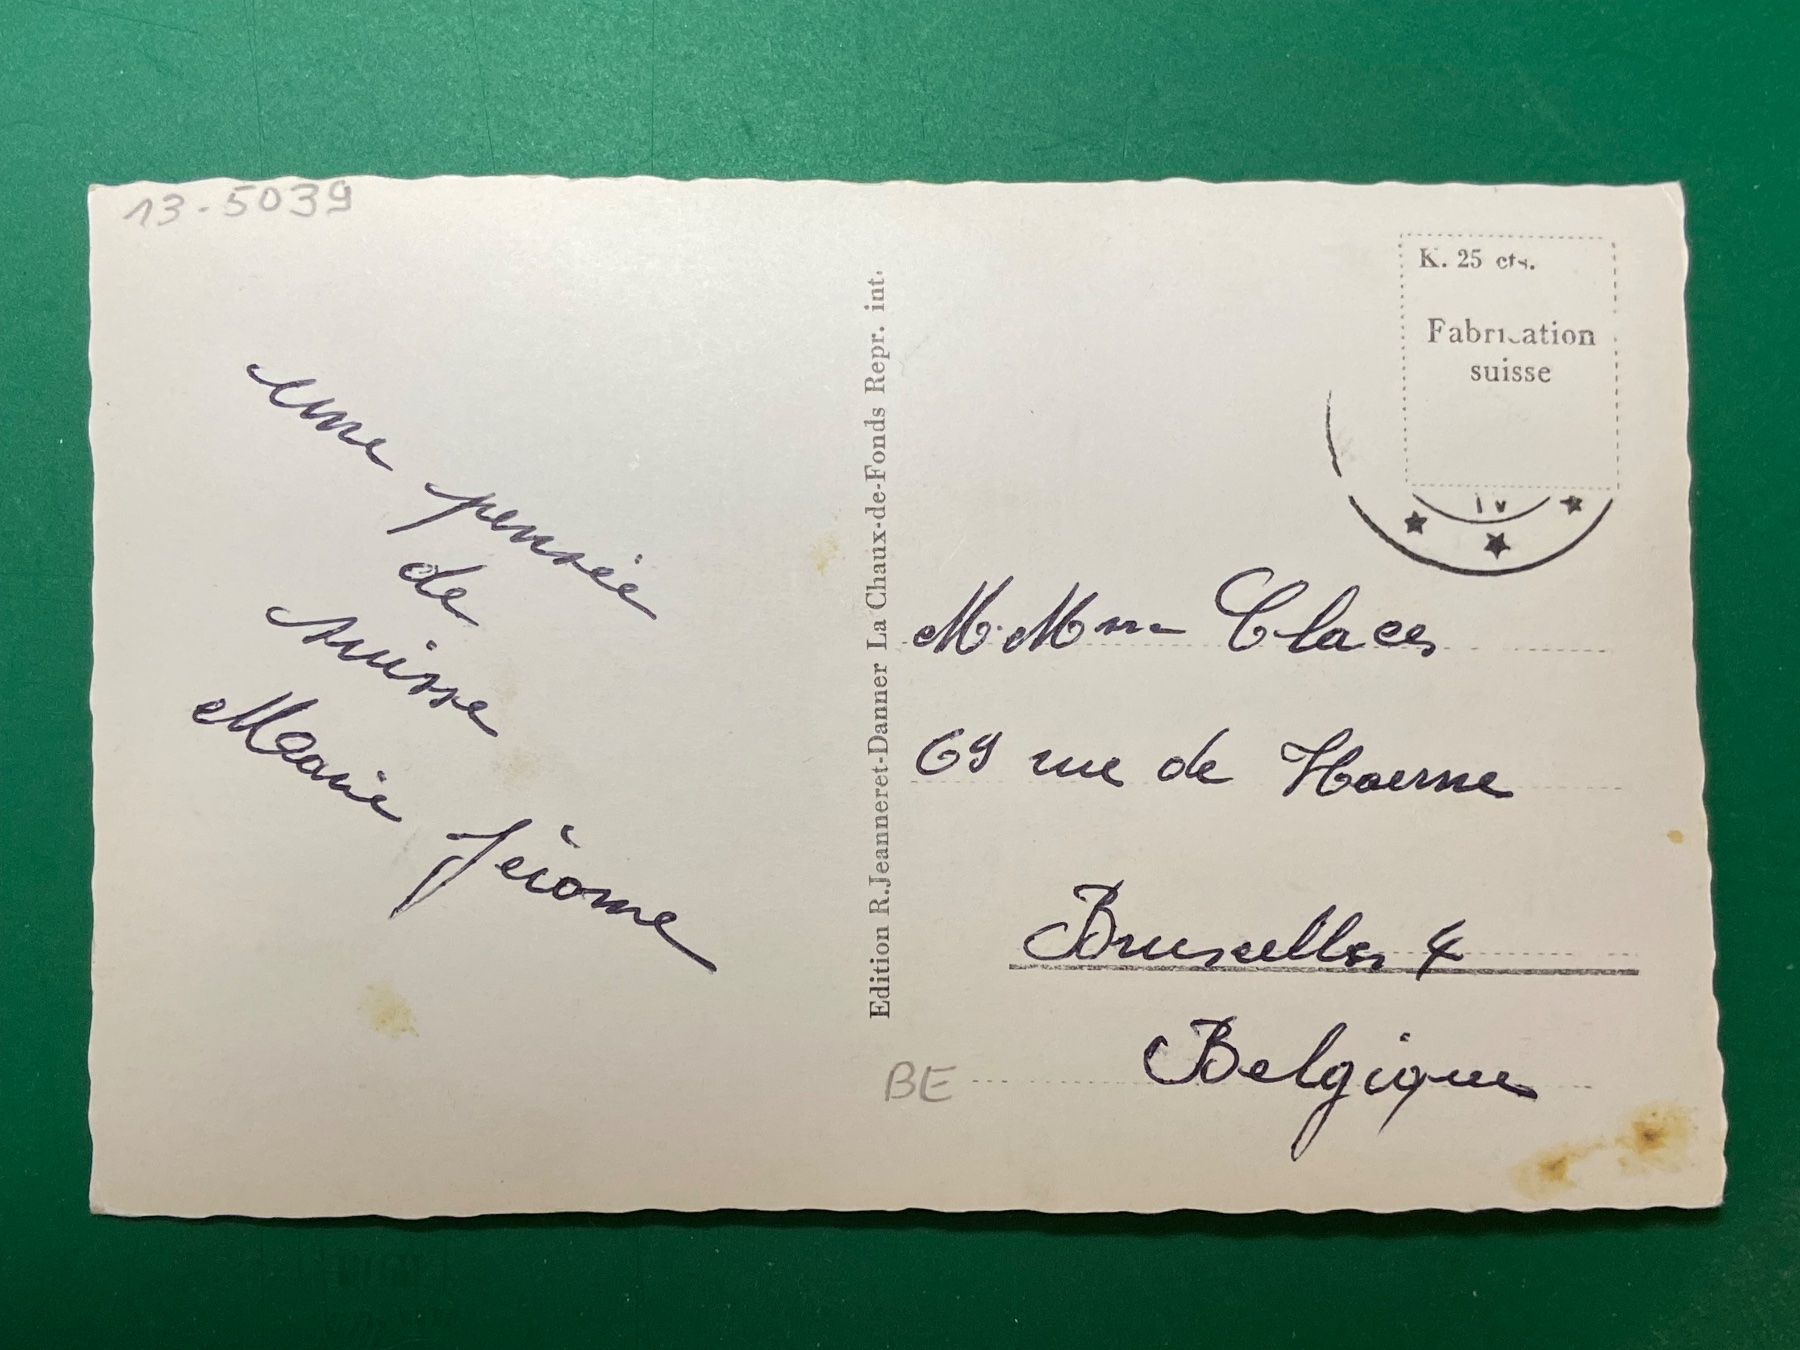 13-5039
une pensée
de
suisse
Marie Jérome
Edition R. Jeanneret-Danner La Chaux-de-Fonds Repr. int.
K. 25 cts.
Fabrication
suisse
M. Mme Claes
69 rue de Hoerne
Bruxelles 4
Belgique
BE